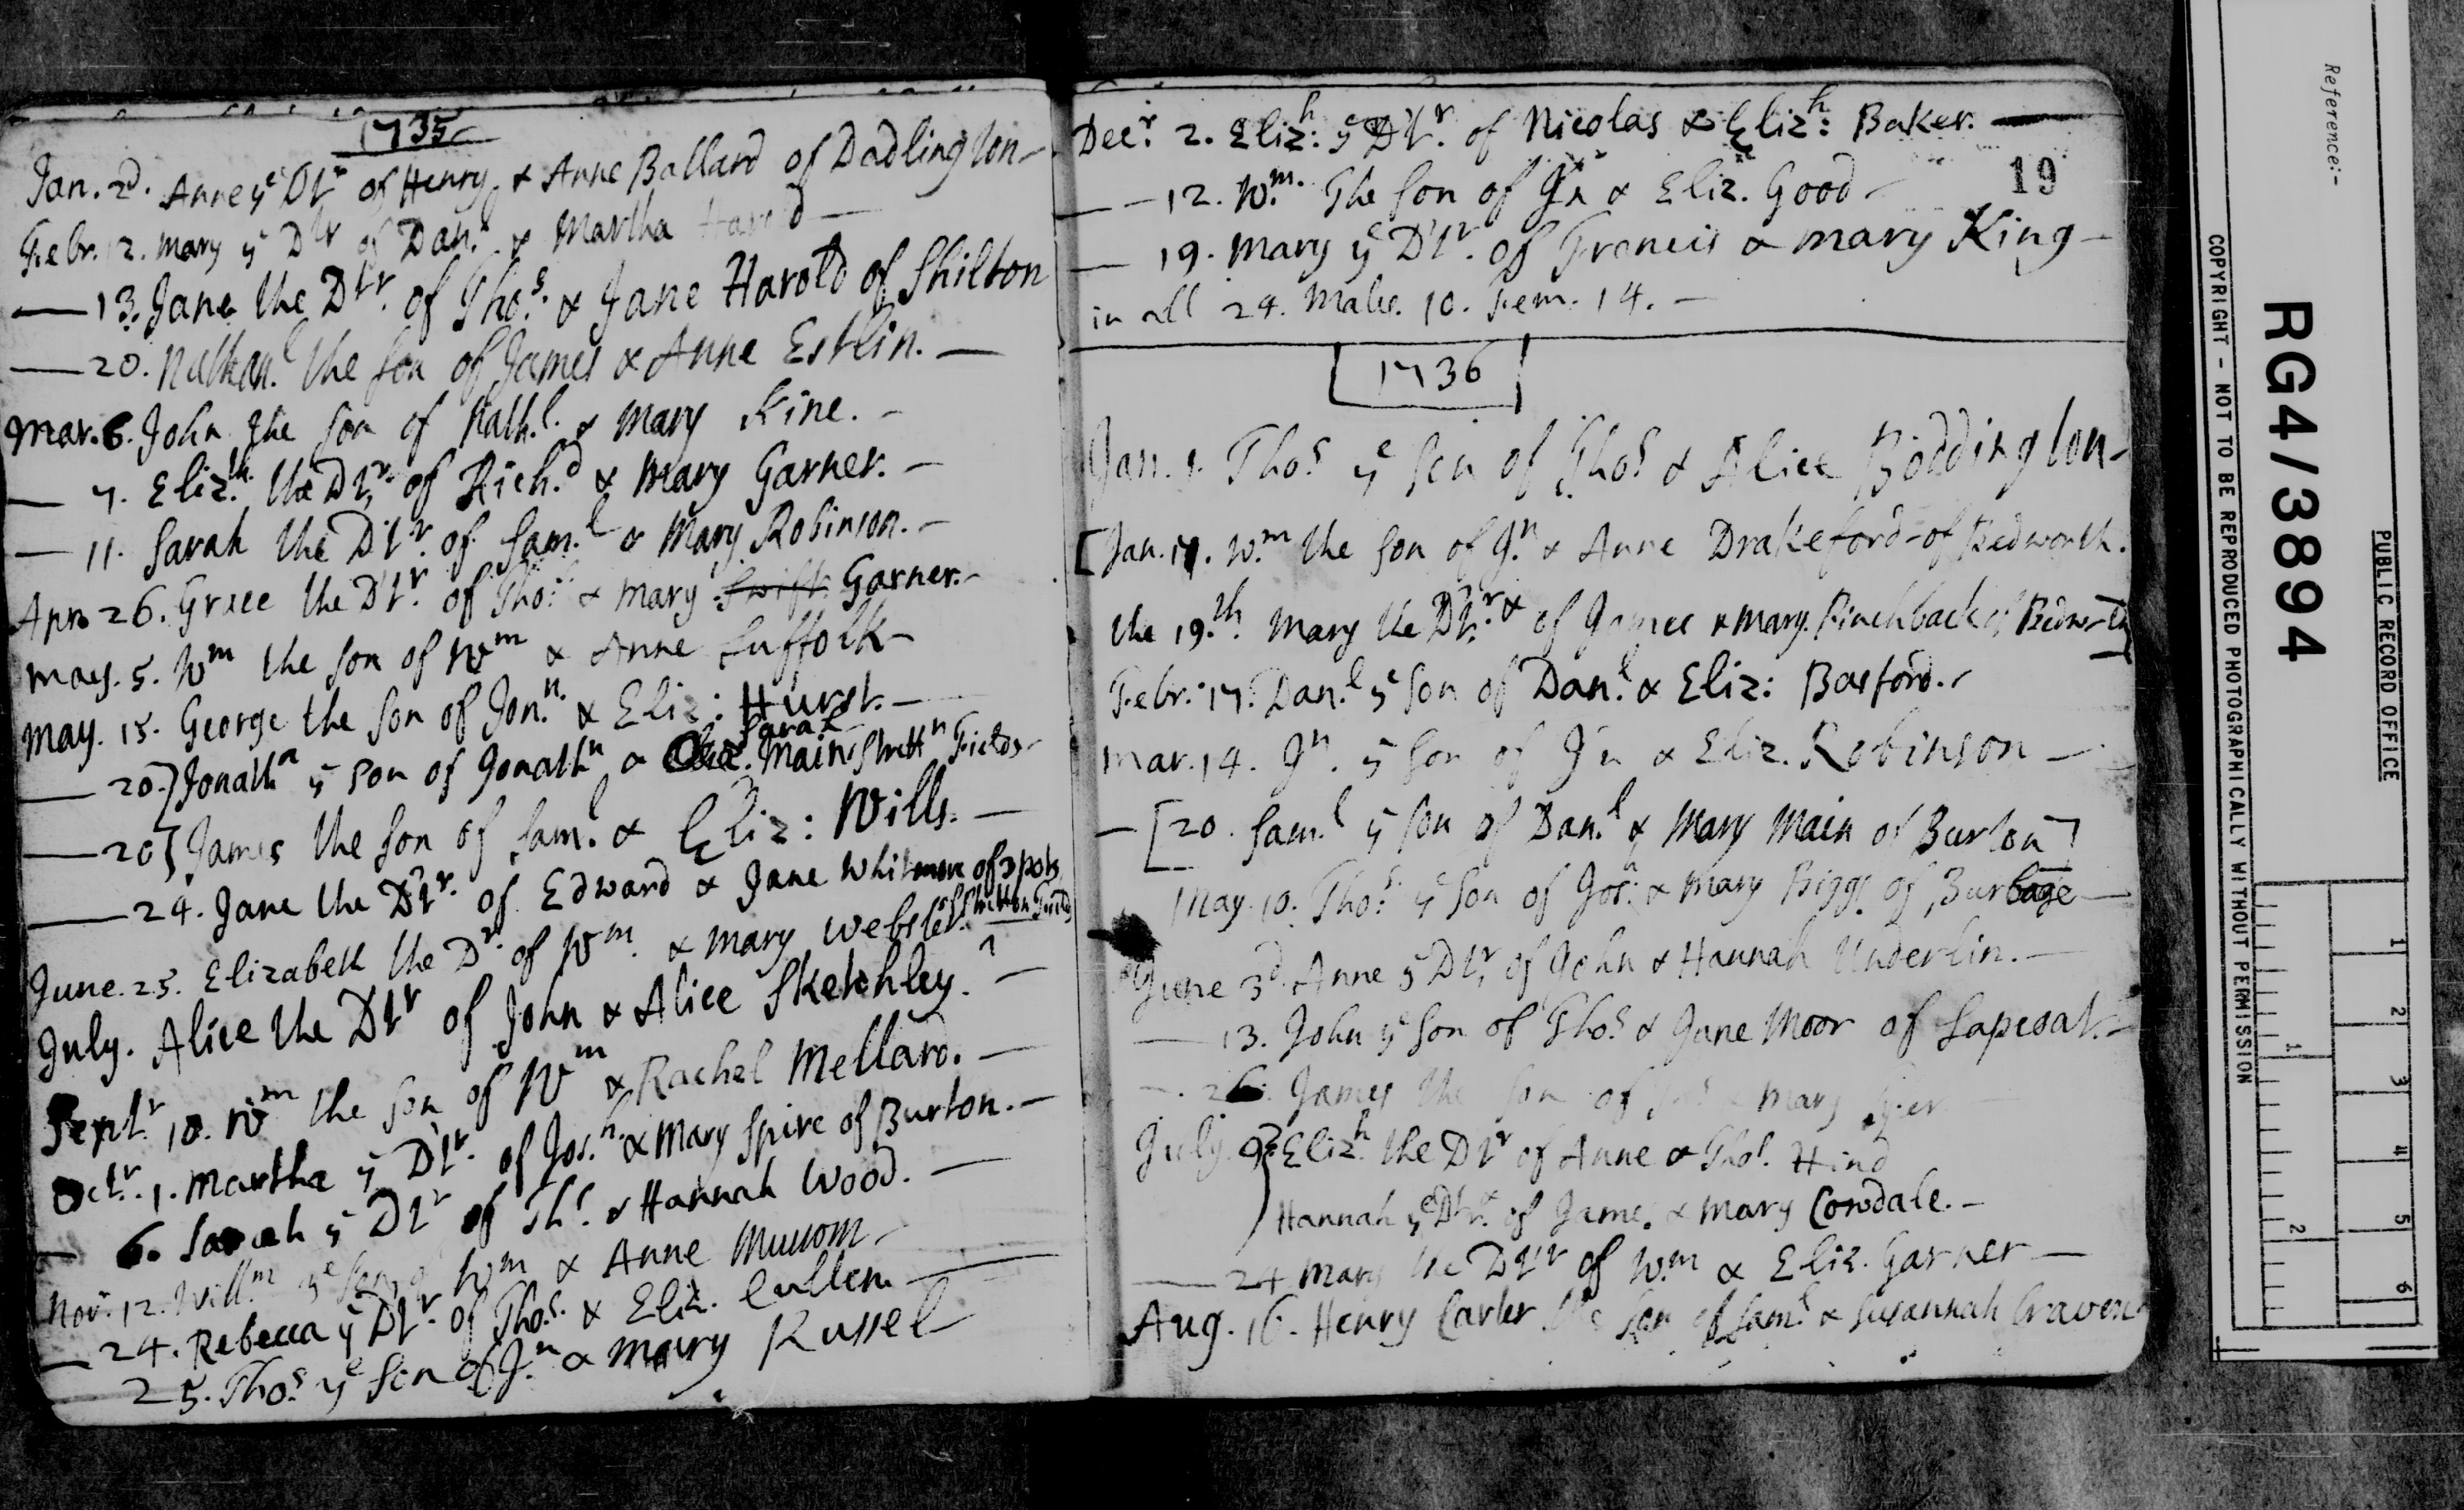 1735
Jan. 2d. Anne ye Dtr of Henry & Anne Ballard of Dadlington
Febr. 12. Mary ye Dtr of Danl. & Martha Harold
13. Jane the Dtr. of Thos. & Jane Harold of Shilton
20. Nathanl. the son of James & Anne Estlin.
Mar. 6. John the son of Nathl. & Mary Kine.
7. Elizth. the Dtr. of Richd. & Mary Garner.
11. Sarah the Dtr. of Saml. & Mary Robinson.
Apr. 26. Grace the Dtr. of Thos. & Mary Swift Garner.
May. 5. Wm the son of Wm & Anne Suffolk
May. 15. George the son of Jonn. & Eliz: Hurst.
20. Jonathn ye son of Jonathn & Sarah Main Strettn Fields
20 James the son of Saml. & Eliz: Wills.
24. Jane the Dtr. of Edward & Jane Whitmore of 3 pots
June. 25. Elizabeth the Dr. of Wm. & Mary Webster of Stretton Fields
July. Alice the Dtr of John & Alice Sketchley.
Septr. 10. Wm the son of Wm & Rachel Mellard.
Octr. 1. Martha ye Dtr. of Josh. & Mary Spire of Burton.
6. Sarah ye Dtr of Ths. & Hannah Wood.
Nov. 12. Willm ye son of Wm & Anne
24. Rebecca ye Dtr. of Thos. & Eliz. Cullen
25. Thos. ye son of Jn & Mary Russel
Decr. 2. Elizh: ye Dtr. of Nicolas & Elizh: Baker.
12. Wm. The son of Jn & Eliz. Good
19
19. Mary ye Dtr. of Francis & Mary King
in all 24. Males. 10. Fem. 14.
1736
Jan. 1. Thos ye son of Thos & Alice Boddington
[Jan. 11. Wm. the son of Jn. & Anne Drakeford of Bedworth.
the 19th. Mary the Dtr. of James & Mary Pinchback of Bedworth]
Febr. 17. Danl. ye son of Danl. & Eliz: Basford.
Mar. 14. Jn. ye son of Jn & Eliz. Robinson
[20. Saml. ye son of Danl. & Mary Main of Burton]
May. 10. Thos. ye son of Josh. & Mary Biggs of Burbage
June 3d. Anne ye Dtr of John & Hannah Underlin.
13. John ye son of Thos. & Jane Moor of Sapcoat.
26. James the son of & Mary
July 9 Elizh. the Dtr of Anne & Thos. Hind
Hannah ye Dtr. of James & Mary Cowdale.
24 Mary the Dtr of Wm. & Eliz. Garner
Aug. 16. Henry Carter the son of Saml. & Susannah Craven
Reference:-
RG4/3894
PUBLIC RECORD OFFICE
COPYRIGHT - NOT TO BE REPRODUCED PHOTOGRAPHICALLY WITHOUT PERMISSION
1 2 3 4 5 6
1 2